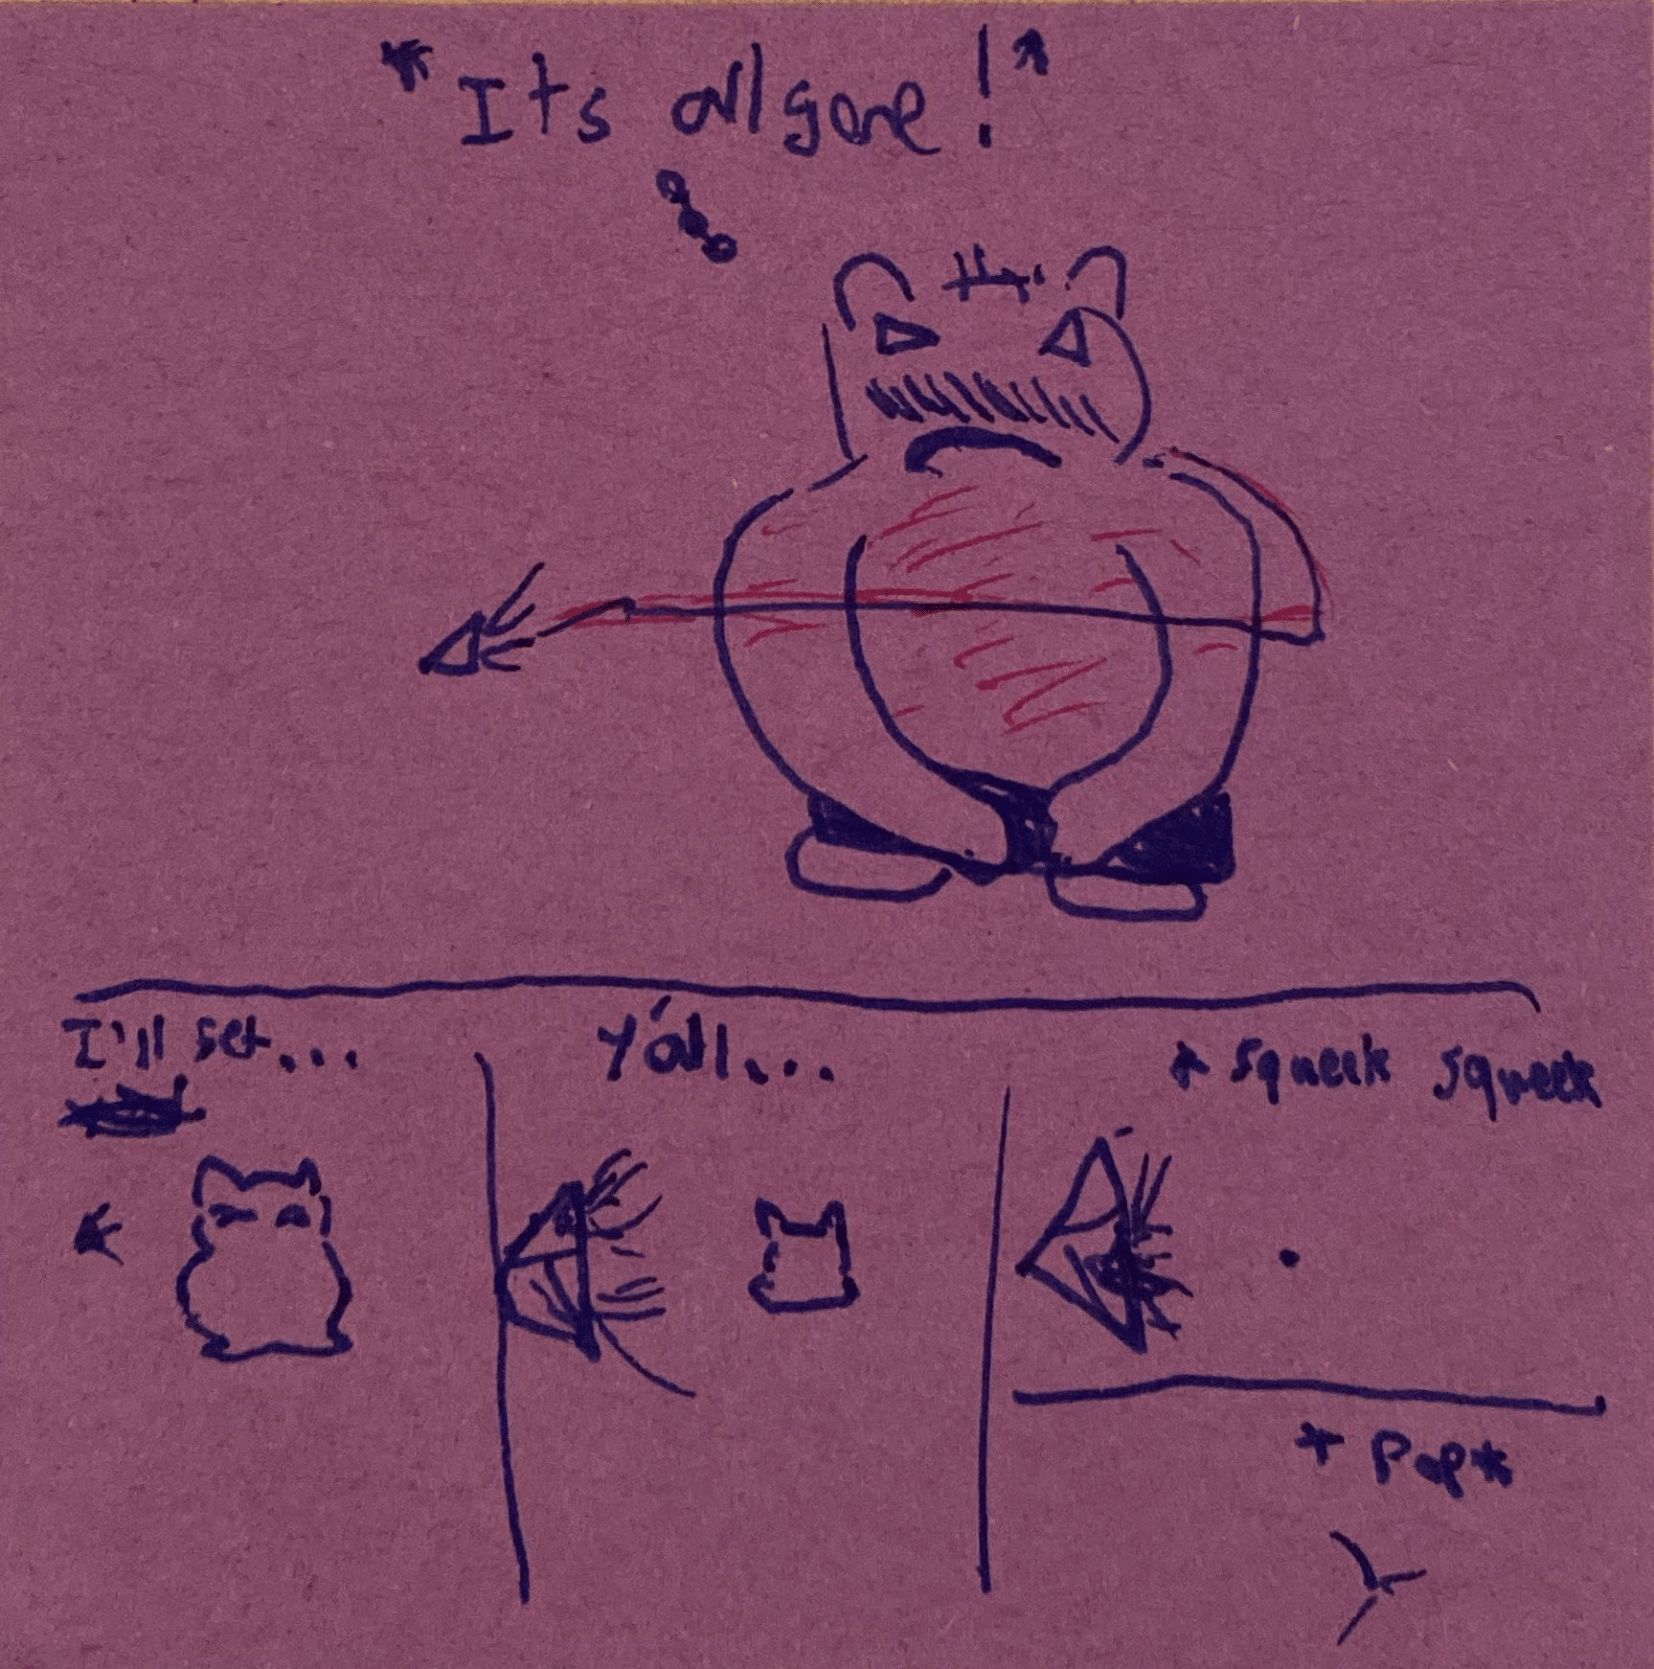 *Its all gone!*
I'll set...
Y'all...
* squeek squeek
* Pop*